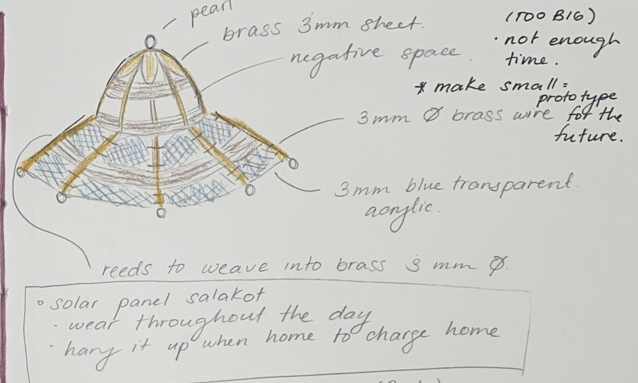 pearl
brass 3mm sheet.
negative space.
(TOO BIG)
• not enough
time.
* make small =
prototype
for the
future.
3mm Ø brass wire
3mm blue transparent
acrylic.
reeds to weave into brass 3 mm Ø
◦ solar panel salakot
- wear throughout the day
- hang it up when home to charge home